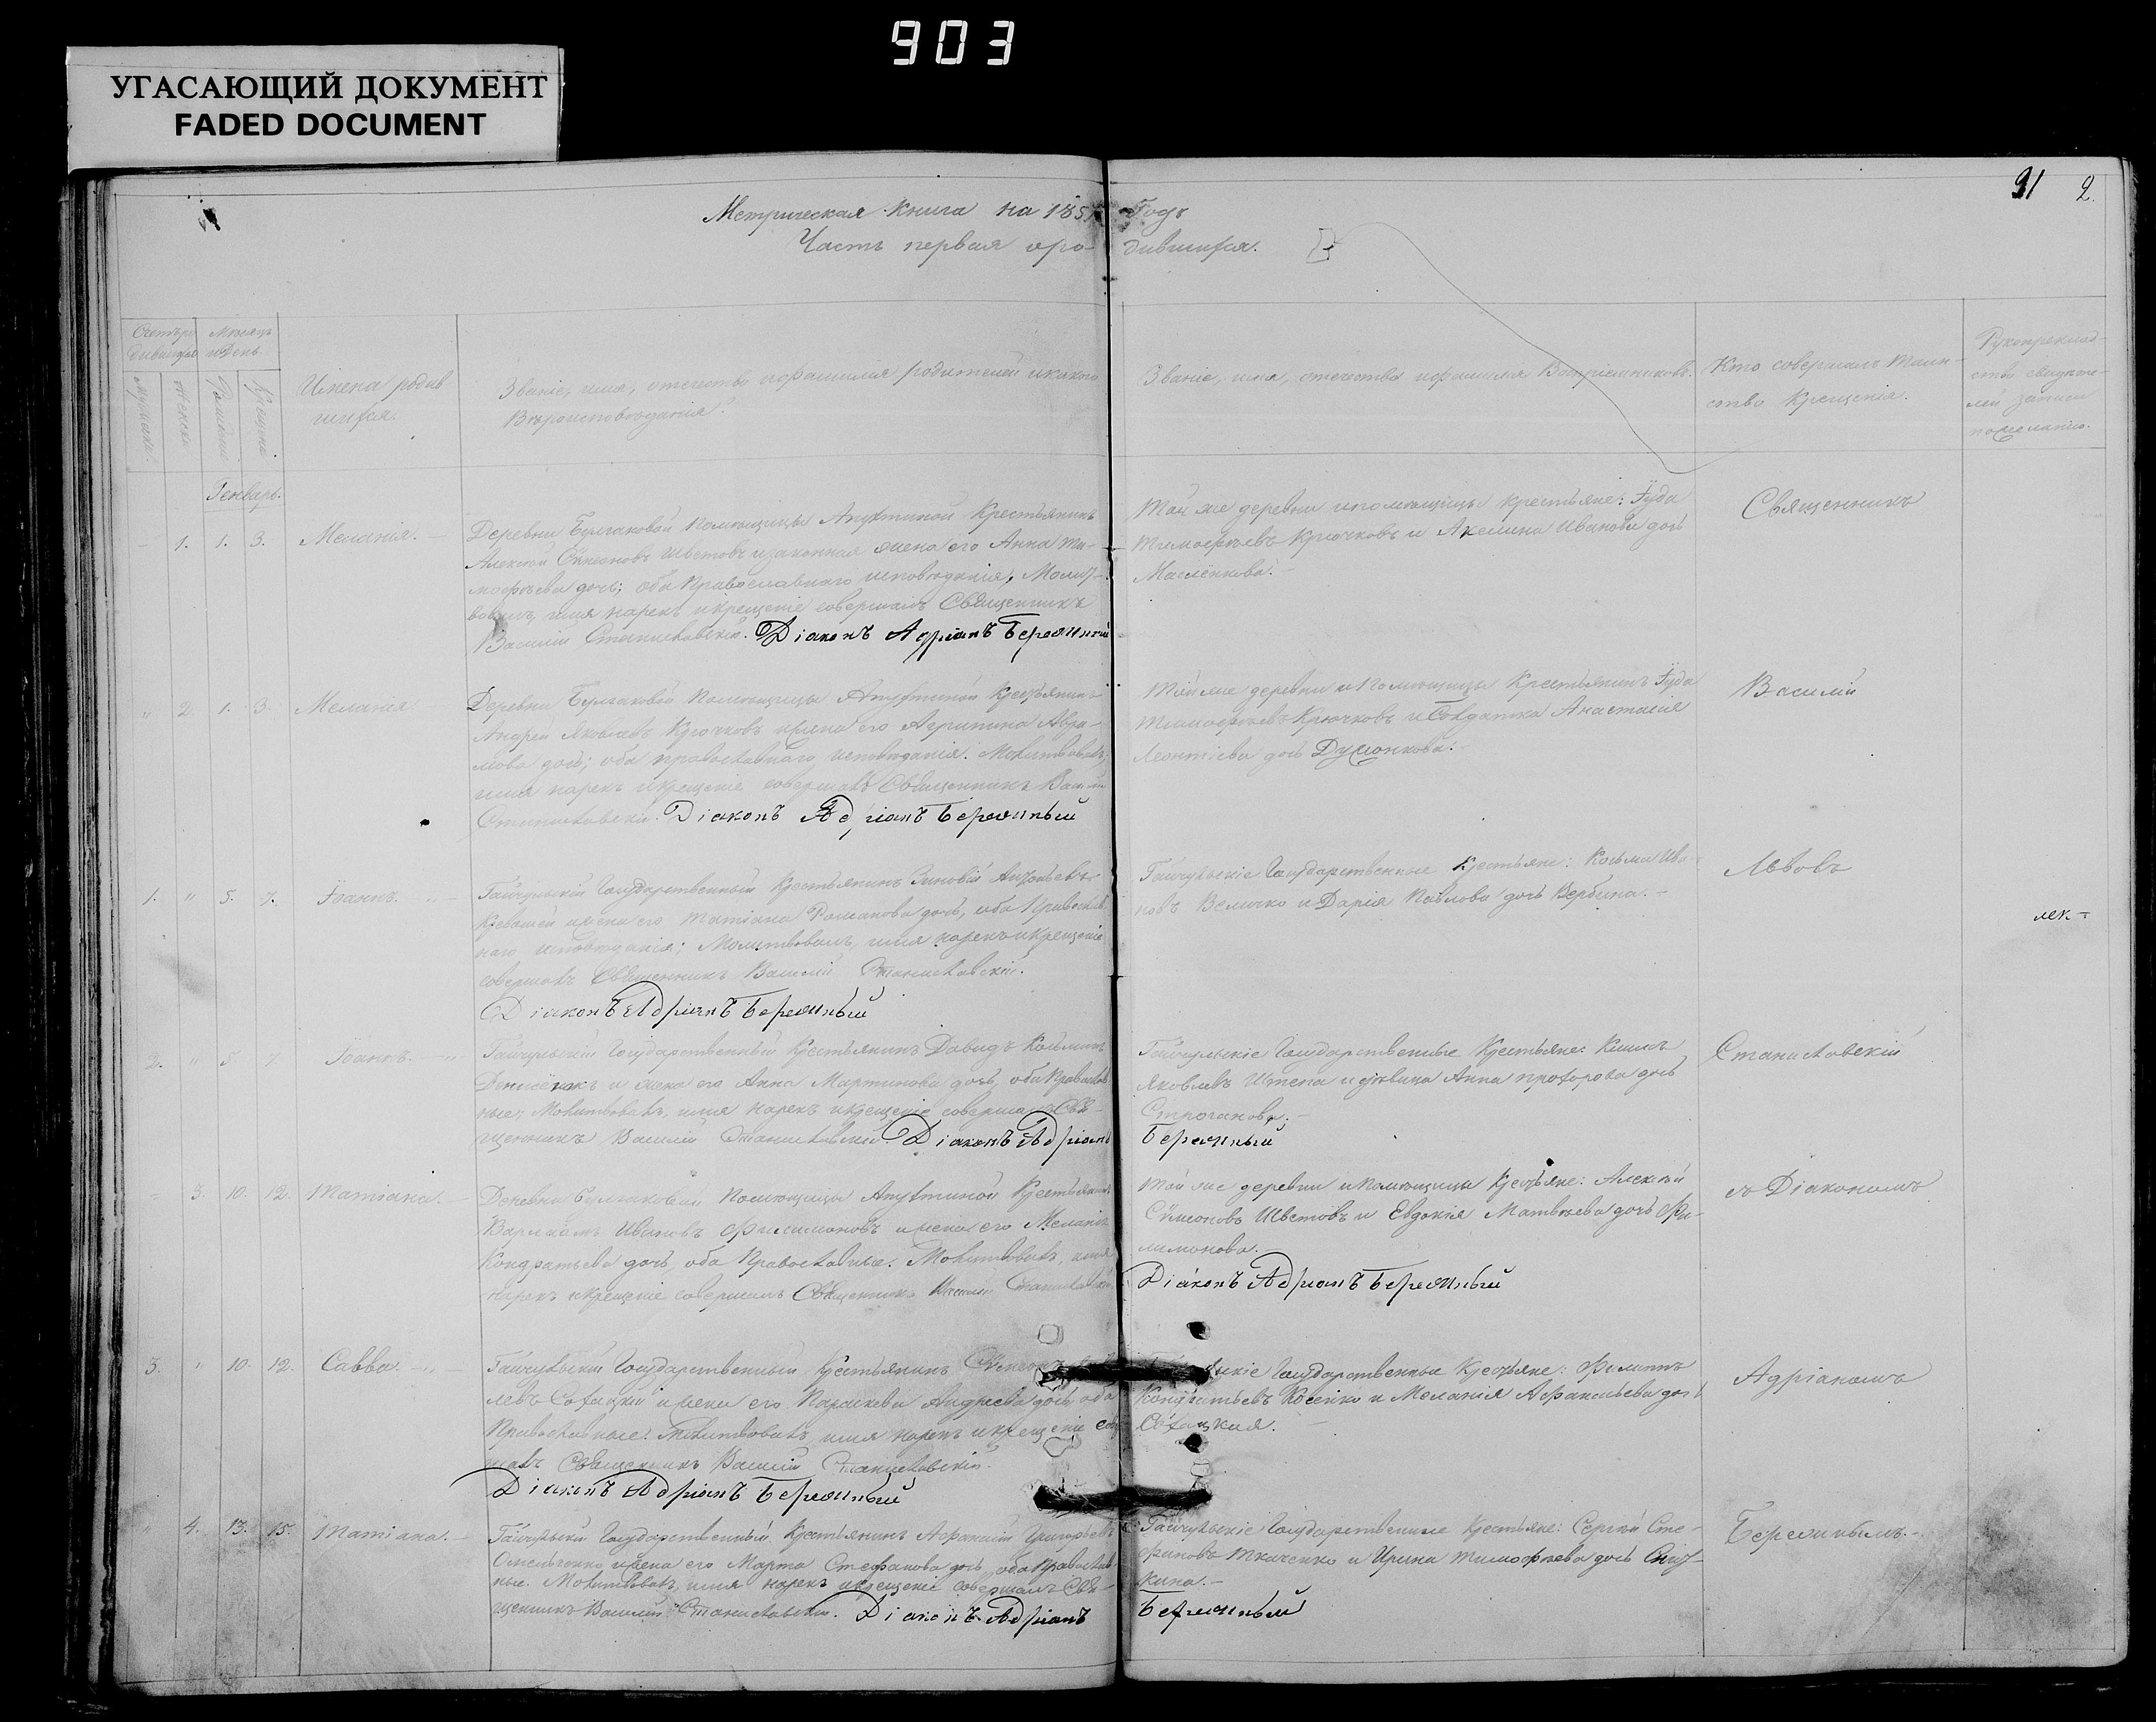 903
УГАСАЮЩИЙ ДОКУМЕНТ
FADED DOCUMENT
91 2.
Метрическая книга на 185 Годъ
Часть первая оро- дившихся.
Счетъ ро дившихся
Мѣсяцъ и День.
Мужска.
Женска.
Рожденія
Крещенія.
Имена родив
шихся.
Званіе, имя, отечество и фамилія родителей и какого
Вѣроисповѣданія.
Званіе, имя, отечество и фамилія Воспріемниковъ.
Кто совершалъ таин-
ство Крещенія.
Рукоприклад-
ство свидѣте-
лей записи
по желанію.
Генварь.
1. 1. 3. Меланія.
Деревни Булгаковой Помѣщицы Апухтиной Крестьянинъ
Алексѣй Сѵмеоновъ Швестовъ и законная жена его Анна Ти-
мофѣева дочь; оба Православнаго исповѣданія; Молит-
вовалъ, имя нарекъ и крещеніе совершалъ Священникъ
Василій Станиславскій. Діаконъ Адріанъ Бережный
Той же деревни и помѣщицы крестьяне: Іуда
Тимофѣевъ Крючковъ и Акелина Иванова дочь
Масленкова.
Священникъ
" 2. 1. 3. Меланія.
Деревни Булгаковой Помѣщицы Апухтиной Крестьянинъ
Андрей Яковлевъ Крючковъ и жена его Агрипина Авра-
мова дочь; оба православнаго исповѣданія. Молитвовалъ,
имя нарекъ и крещеніе совершалъ Священникъ Василій
Станиславскій. Діаконъ Адріанъ Бережный
Той же деревни и Помѣщицы Крестьянинъ Іуда
Тимофѣевъ Крючковъ и Солдатка Анастасія
Леонтіева дочь
Василій
1. " 5. 7. Іоаннъ.
Гайчульскій Государственный Крестьянинъ Зиновій
и жена его Татіана Романова дочь, оба Православ
наго исповѣданія; Молитвовалъ, имя нарекъ и крещеніе
совершалъ Священникъ Василій Станиславскій.
Діаконъ Адріанъ Бережный
Гайчульскіе Государственные Крестьяне: Косьма Ива-
новъ Величко и Дарія Павлова дочь Вербина.
Львовъ
лек-
2. " 5 7. Іоаннъ.
Гайчульскій Государственный Крестьянинъ Давидъ Косьминъ
и жена его Анна Мартинова дочь, оба Православ
ные; Молитвовалъ, имя нарекъ и крещеніе совершалъ Свя-
щенникъ Василій Станиславскій. Діаконъ Адріанъ
Гайчульскіе Государственные Крестьяне:
Яковлевъ Штепа и дѣвица Анна Прохорова дочь
Строганова.
Бережный
Станиславскій
3. 10. 12. Татіана.
Деревни Булгаковой Помѣщицы Апухтиной Крестьянинъ
Варлаамъ Ивановъ Филимоновъ и жена его Меланія
Кондратьева дочь, оба Православные. Молитвовалъ, имя
нарекъ и крещеніе совершалъ Священникъ Василій Станиславскій
Той же деревни и Помѣщицы Крестьяне: Алексѣй
Сѵмеоновъ Швестовъ и Евдокія Матвѣева дочь Фи-
лимонова.
Діаконъ Адріанъ Бережный
съ Діакономъ
3. " 10. 12. Савва.
Гайчульскій Государственный Крестьянинъ Сѵмеонъ
левъ Сохацкій и жена его Параскева Андреева дочь оба
Православные. Молитвовалъ, имя нарекъ и крещеніе совер
шалъ Священникъ Василій Станиславскій.
Діаконъ Адріанъ Бережный
Государственные Крестьяне: Филиппъ
Кондратьевъ Косенко и Меланія Афанасьева дочь
Сохацкая.
Адріаномъ
" 4. 13. 15. Татіана.
Гайчульскій Государственный Крестьянинъ Афанасій Григорьевъ
Омельченко и жена его Марта Стефанова дочь оба Православ
ные. Молитвовалъ, имя нарекъ и крещеніе совершалъ Свя-
щенникъ Василій Станиславскій. Діаконъ Адріанъ
Гайчульскіе Государственные Крестьяне: Сергѣй Сте-
фановъ Ткаченко и Ирина Тимофѣева дочь
Бережный
Бережнымъ.